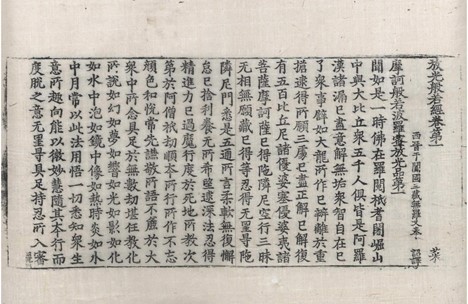 放光般若經卷第一 菜
西晉于闐國三藏無羅叉奉 詔譯
摩訶般若波羅蜜放光品第一
聞如是一時佛在羅閱祇耆闍崛山
中與大比丘衆五千人俱皆是阿羅
漢諸漏已盡意解無垢衆智自在已
了衆事譬如大龍所作已辦離於重
擔逮得所願三處已盡正解已解復
有五百比丘尼諸優婆塞優婆夷諸
菩薩摩訶薩已得陁隣尼空行三昧
无相無願藏已得等忍得无罣㝵陁
隣尼門悉是五通所言柔軟無復懈
怠已捨利養无所悕望逮深法忍得
精進力已過魔行度於死地所教次
第於阿僧祇劫順本所行所作不忘
顏色和悅常先謙敬所語不麁於大
衆中所念具足於無數劫堪任教化
所說如幻如夢如響如光如影如化
如水中泡如鏡中像如熱時炎如水
中月常以此法用悟一切悉知衆生
意所趣向能以微妙慧隨其本行而
度脫之意无罣㝵具足持忍所入審